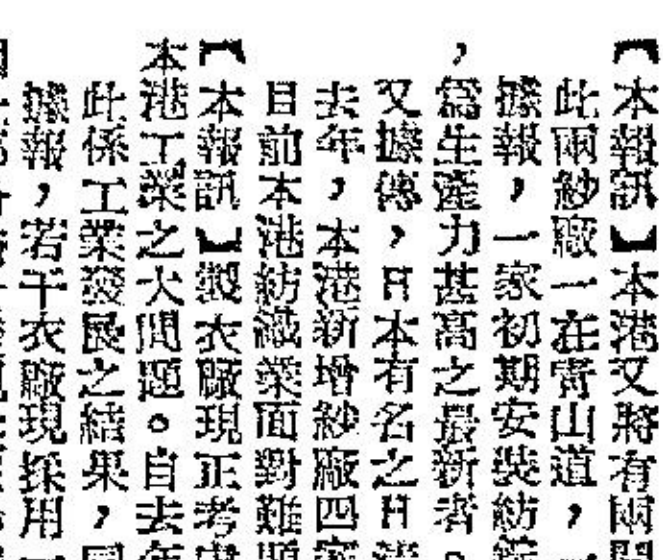 【本報訊】本港又將有兩
此兩紗廠一在青山道，
據報，一家初期安裝紡
，為生產力甚高之最新者。
又據傳，日本有名之日
去年，本港新增紗廠四家
目前本港紡織業面對難題
【本報訊】製衣廠現正考
本港工業之大問題。自去年
此係工業發展之結果，
據報，若干衣廠現採用